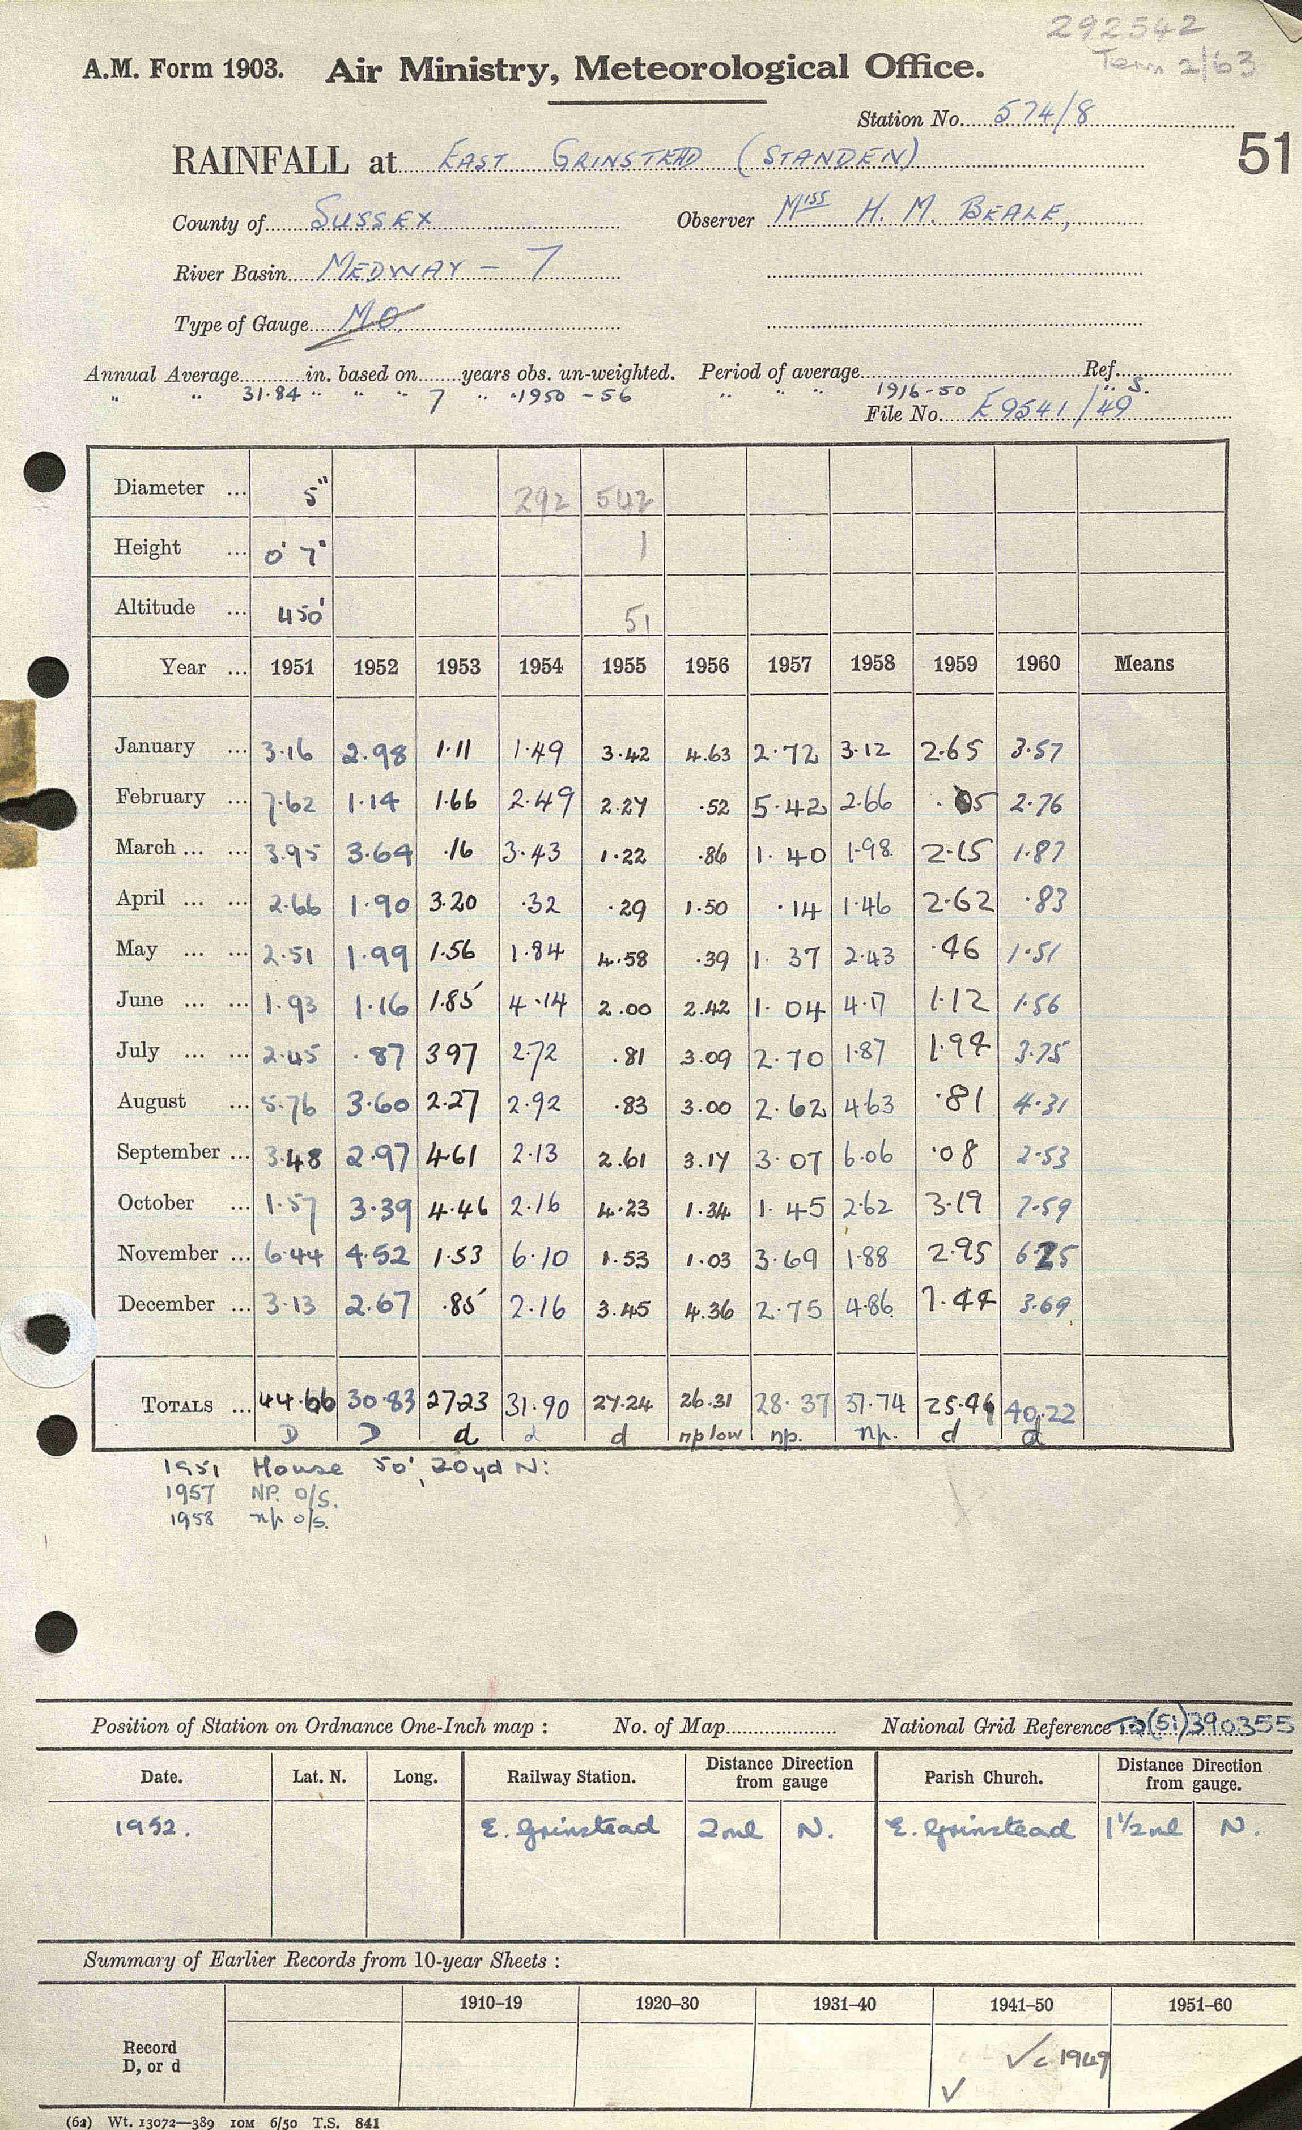 292542
Term 2/63
A.M. Form 1903. Air Ministry, Meteorological Office.
Station No. 574/8
51
RAINFALL at EAST GRINSTEAD (STANDEN)
County of SUSSEX Observer Miss H. M. BEALE,
River Basin MEDWAY - 7
Type of Gauge MO
Annual Average in. based on years obs. un-weighted. Period of average Ref.
" " 31.84 " " " 7 " " 1950 - 56 " " " 1916-50 " S.
File No. E9541/49
Diameter ... 5" 292 542
Height ... 0' 7" 1
Altitude ... 450' 51
Year ... 1951 1952 1953 1954 1955 1956 1957 1958 1959 1960 Means
January ... 3.16 2.98 1.11 1.49 3.42 4.63 2.72 3.12 2.65 3.57
February ... 7.62 1.14 1.66 2.49 2.27 .52 5.42 2.66 .05 2.76
March ... ... 3.95 3.64 .16 3.43 1.22 .86 1.40 1.98 2.15 1.87
April ... ... 2.66 1.90 3.20 .32 .29 1.50 .14 1.46 2.62 .83
May ... ... 2.51 1.99 1.56 1.84 4.58 .39 1.37 2.43 .46 1.51
June ... ... 1.93 1.16 1.85 4.14 2.00 2.42 1.04 4.17 1.12 1.56
July ... ... 2.45 .87 3.97 2.72 .81 3.09 2.70 1.87 1.94 3.75
August ... 5.76 3.60 2.27 2.92 .83 3.00 2.62 4.63 .81 4.31
September ... 3.48 2.97 4.61 2.13 2.61 3.17 3.07 6.06 .08 2.53
October ... 1.57 3.39 4.46 2.16 4.23 1.34 1.45 2.62 3.19 7.59
November ... 6.44 4.52 1.53 6.10 1.53 1.03 3.69 1.88 2.95 6.25
December ... 3.13 2.67 .85 2.16 3.45 4.36 2.75 4.86 7.44 3.69
TOTALS ... 44.66 30.83 27.23 31.90 27.24 26.31 28.37 37.74 25.46 40.22
D D d d d np low np. np. d d
1951 House 50', 20yd N:
1957 NP. O/S.
1958 np o/s.
Position of Station on Ordnance One-Inch map : No. of Map National Grid Reference TQ(51)390355
Date. Lat. N. Long. Railway Station. Distance Direction from gauge Parish Church. Distance Direction from gauge.
1952. E. Grinstead 2ml N. E. Grinstead 1½ml N.
Summary of Earlier Records from 10-year Sheets :
1910–19 1920–30 1931–40 1941–50 1951–60
Record
D, or d
✓c 1949
✓
(62) Wt. 13072—389 10M 6/50 T.S. 841